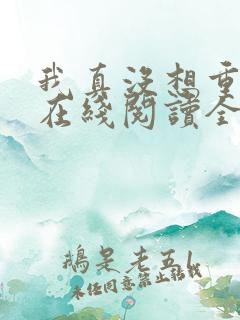 我真沒想重
在綫閱讀全
鵝是老五\
未经同意禁止转载